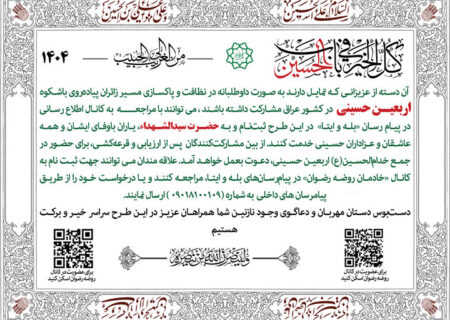 السلام علی الحسین
کل الخیر فی باب الحسین
من الغریب الی الحبیب
۱۴۰۴
آن دسته از عزیزانی که تمایل دارند به صورت داوطلبانه در نظافت و پاکسازی مسیر زائران پیاده‌روی باشکوه
اربعین حسینی در کشور عراق مشارکت داشته باشند، می توانند با مراجعه به کانال اطلاع رسانی
در پیام رسان «بله و ایتا» در این طرح ثبت‌نام و به حضرت سیدالشهداء، یاران باوفای ایشان و همه
عاشقان و عزاداران حسینی خدمت کنند. از بین مشارکت‌کنندگان پس از ارزیابی و قرعه‌کشی، برای حضور در
جمع خدام‌الحسین(ع) اربعین حسینی، دعوت بعمل خواهد آمد. علاقه مندان می توانند جهت ثبت نام به
کانال «خادمان روضه رضوان» در پیام‌رسان‌های بله و ایتا، مراجعه کنند و یا درخواست خود را از طریق
پیام‌رسان های داخلی به شماره (۰۹۰۱۸۱۰۰۱۰۹) ارسال نمایند.
دست‌بوس دستان مهربان و دعاگوی وجود نازنین شما همراهان عزیز در این طرح سراسر خیر و برکت
هستیم
برای عضویت در کانال
روضه رضوان اسکن کنید
ولینصرن الله من ینصره
برای عضویت در کانال
روضه رضوان اسکن کنید